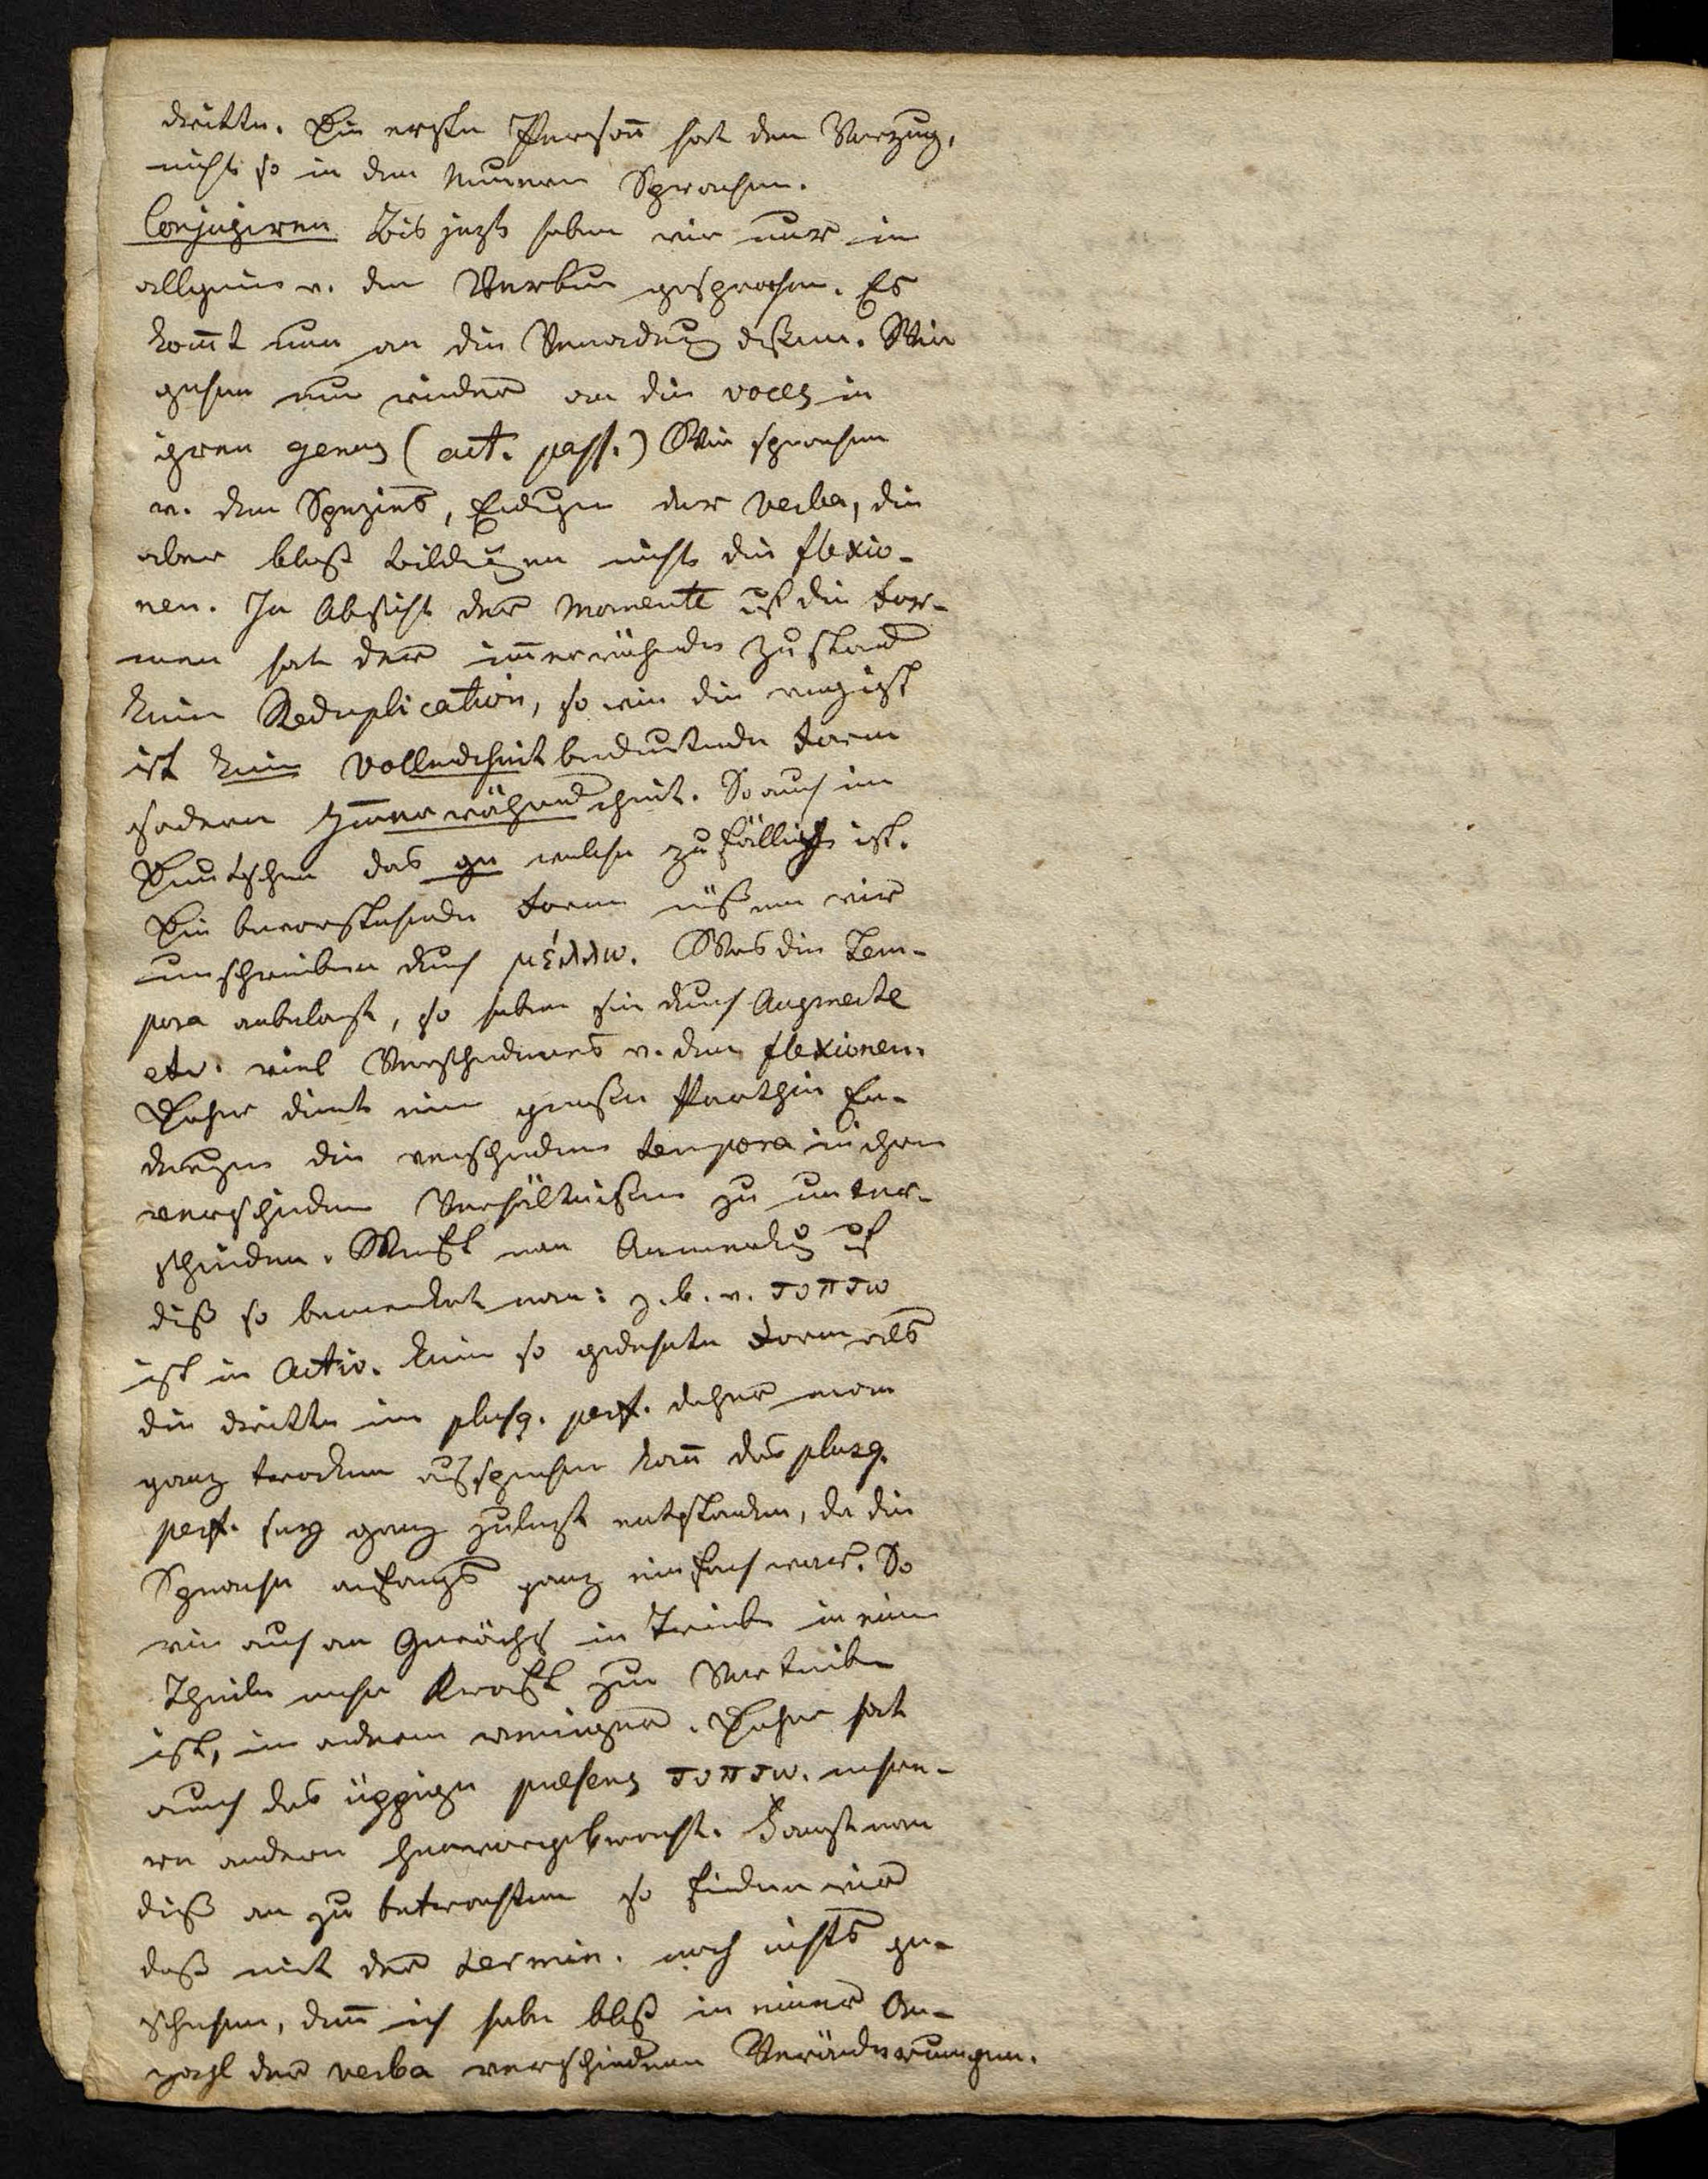 dritte. Die erste Person̄ hat den Vorzug,
nicht so in den neuern Sprachen.
Conjugiren Bis jezt haben wir nur im
allgemein v. den Verbum gesprochen. Es
kom̄t nun an die Verändrug deßen. Wir
gehen nun wieder an die voces in
ihren genus (act. pass.) Wir sprachen
v. den Spezies, Endugen der Verba, die
aber bloß bildugen nicht die flexio-
nen. In Absicht der Momente uf die For-
men hat der im̄erwährende Zustand
keine Reduplication, so wie die
ist keine Vollendtheit bedeutende Form
sodern Im̄erwährendtheit. So auch im
Deutschen das ge welches zufällig ist.
Die bevorstehende Form müßen wir
umschreiben durch μέλλω. Was die Tem-
pora anbelangt, so haben sie durch Augmente
etc. viel Verschiedenes v. den flexionen.
Daher dient eine große Parthie En-
dungen die verschiedene tempora in ihren
verschieden Verhältnißen zu unter-
scheiden. Macht man Anmerkug uf
diß so bemerket man: z.b. v. τυπτω
ist in Activ. keine so gedehnte Form als
die dritte im plusq. perf. daher man
ganz trocken aussprechen kan̄ das plusq.
perf. sey ganz zulezt entstanden, da die
Sprache anfangs ganz einfach war. So
wie auch an Gewächs ein Trieb in einem
Theile mehr Kraft zum Vortreiben
ist, im andern weniger. Daher hat
auch das üppige præsens τυπτω mehre-
re andern hervorgebracht. Fangt man
diß an zu betrachten so finden wir
daß mit der termin. noch nichts ge-
schehen, den̄ ich habe bloß in einer An-
zahl der verba verschiedene Veränderungen.